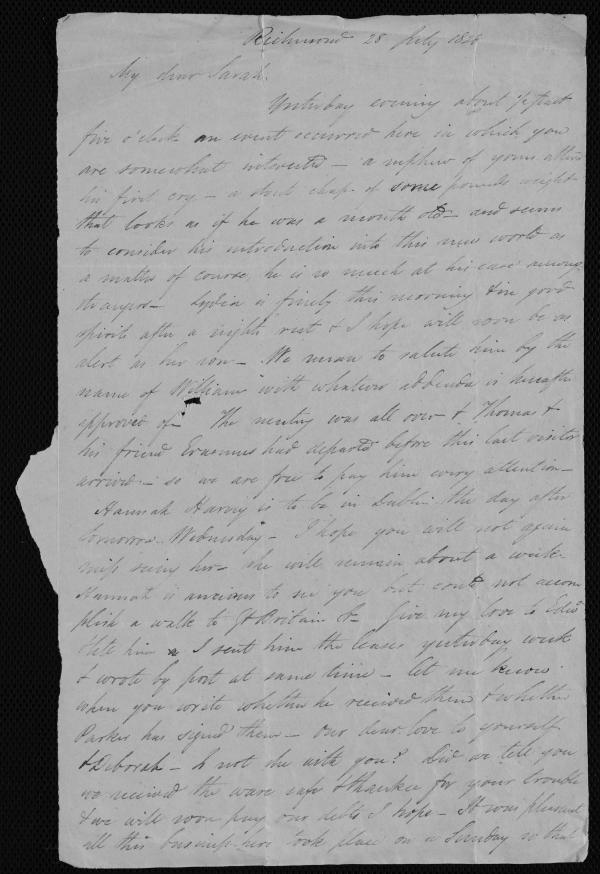 Richmond 28 July 18
My dear Sarah.
Yesterday evening about ½ past
five o'clock an event occurred here in which you
are somewhat interested – a nephew of yours
his first cry – a stout chap of some pounds weight
that looks as if he was a month old – and seems
to consider his introduction into this new world as
a matter of course, he is so much at his ease among
strangers – Lydia is finely this morning & in good
spirits after a nights rest & I hope will soon be as
alert as her son – We mean to salute him by the
name of William with whatever addenda is hereafter
approved of – The meeting was all over & Thomas &
his friend Erasmus had departed before this last visitor
arrived – so we are free to pay him every attention –
Hannah Harvey is to be in Dublin the day after
tomorrow. Wednesday – I hope you will not again
miss seeing her – she will remain about a week.
Hannah is anxious to see you but could not accom
plish a walk to Gt Britain St – Give my love to
& tell him I sent him the leases yesterday week
& wrote by post at same time – let me know
when you write whether he received them & whether
Parker has signed them – Our dear love to yourself
& Deborah – Is not she with you? Did we tell you
we received the ware safe & thankee for your trouble
& we will soon pay our debts I hope – It was pleasant
all this business here took place on a Sunday so that